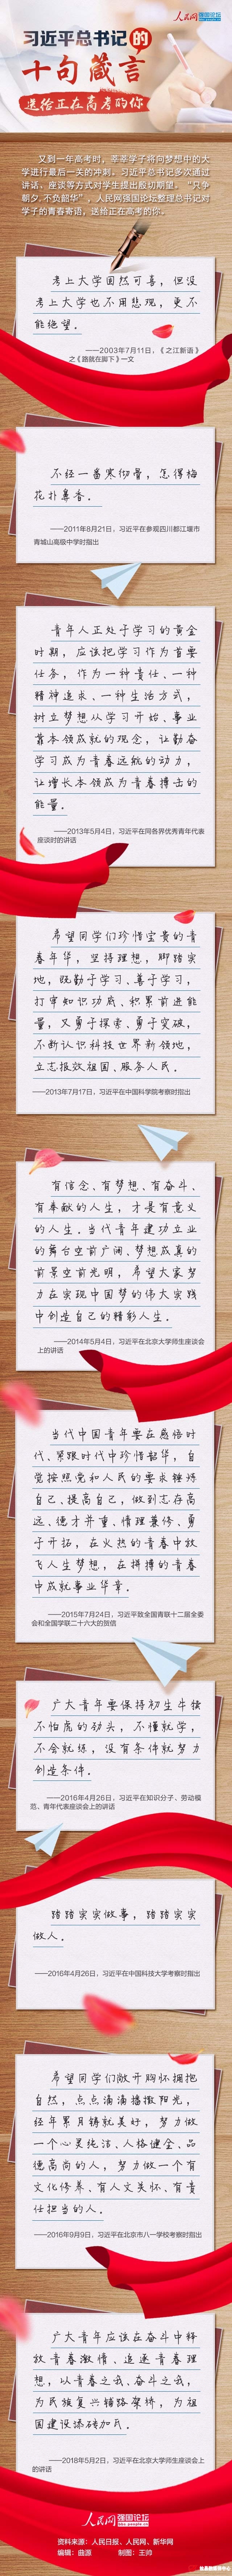 人民网 强国论坛
习近平总书记的
十句箴言
送给正在高考的你
又到一年高考时，莘莘学子将向梦想中的大
学进行最后一关的冲刺。习近平总书记多次通过
讲话、座谈等方式对学生提出殷切期望。“只争
朝夕，不负韶华”，人民网强国论坛整理总书记对
学子的青春寄语，送给正在高考的你。
考上大学固然可喜，但没
考上大学也不用悲观，更不
能绝望。
——2003年7月11日，《之江新语》
之《路就在脚下》一文
不经一番寒彻骨，怎得梅
花扑鼻香。
——2011年8月21日，习近平在参观四川都江堰市
青城山高级中学时指出
青年人正处于学习的黄金
时期，应该把学习作为首要
任务，作为一种责任、一种
精神追求、一种生活方式，
树立梦想从学习开始、事业
靠本领成就的观念，让勤奋
学习成为青春远航的动力，
让增长本领成为青春搏击的
能量。
——2013年5月4日，习近平在同各界优秀青年代表
座谈时的讲话
希望同学们珍惜宝贵的青
春年华，坚持理想，脚踏实
地，既勤于学习、善于学习，
打牢知识功底、积累前进能
量，又勇于探索、勇于突破，
不断认识科技世界新领地，
立志报效祖国、服务人民。
——2013年7月17日，习近平在中国科学院考察时指出
有信念、有梦想、有奋斗、
有奉献的人生，才是有意义
的人生。当代青年建功立业
的舞台空前广阔、梦想成真的
前景空前光明，希望大家努
力在实现中国梦的伟大实践
中创造自己的精彩人生。
——2014年5月4日，习近平在北京大学师生座谈会
上的讲话
当代中国青年要在感悟时
代、紧跟时代中珍惜韶华，自
觉按照党和人民的要求锤炼
自己、提高自己，做到志存高
远、德才并重、情理兼修、勇
于开拓，在火热的青春中放
飞人生梦想，在拼搏的青春
中成就事业华章。
——2015年7月24日，习近平致全国青联十二届全委
会和全国学联二十六大的贺信
广大青年要保持初生牛犊
不怕虎的劲头，不懂就学，
不会就练，没有条件就努力
创造条件。
——2016年4月26日，习近平在知识分子、劳动模
范、青年代表座谈会上的讲话
踏踏实实做事，踏踏实实
做人。
——2016年4月26日，习近平在中国科技大学考察时指出
希望同学们敞开胸怀拥抱
自然，点点滴滴播撒阳光，
经年累月铸就美好，努力做
一个心灵纯洁、人格健全、品
德高尚的人，努力做一个有
文化修养、有人文关怀、有责
任担当的人。
——2016年9月9日，习近平在北京市八一学校考察时指出
广大青年应该在奋斗中释
放青春激情、追逐青春理
想，以青春之我、奋斗之我，
为民族复兴铺路架桥，为祖
国建设添砖加瓦。
——2018年5月2日，习近平在北京大学师生座谈会上
的讲话
人民网 强国论坛
资料来源：人民日报、人民网、新华网
编辑：曲源 制图：王帅